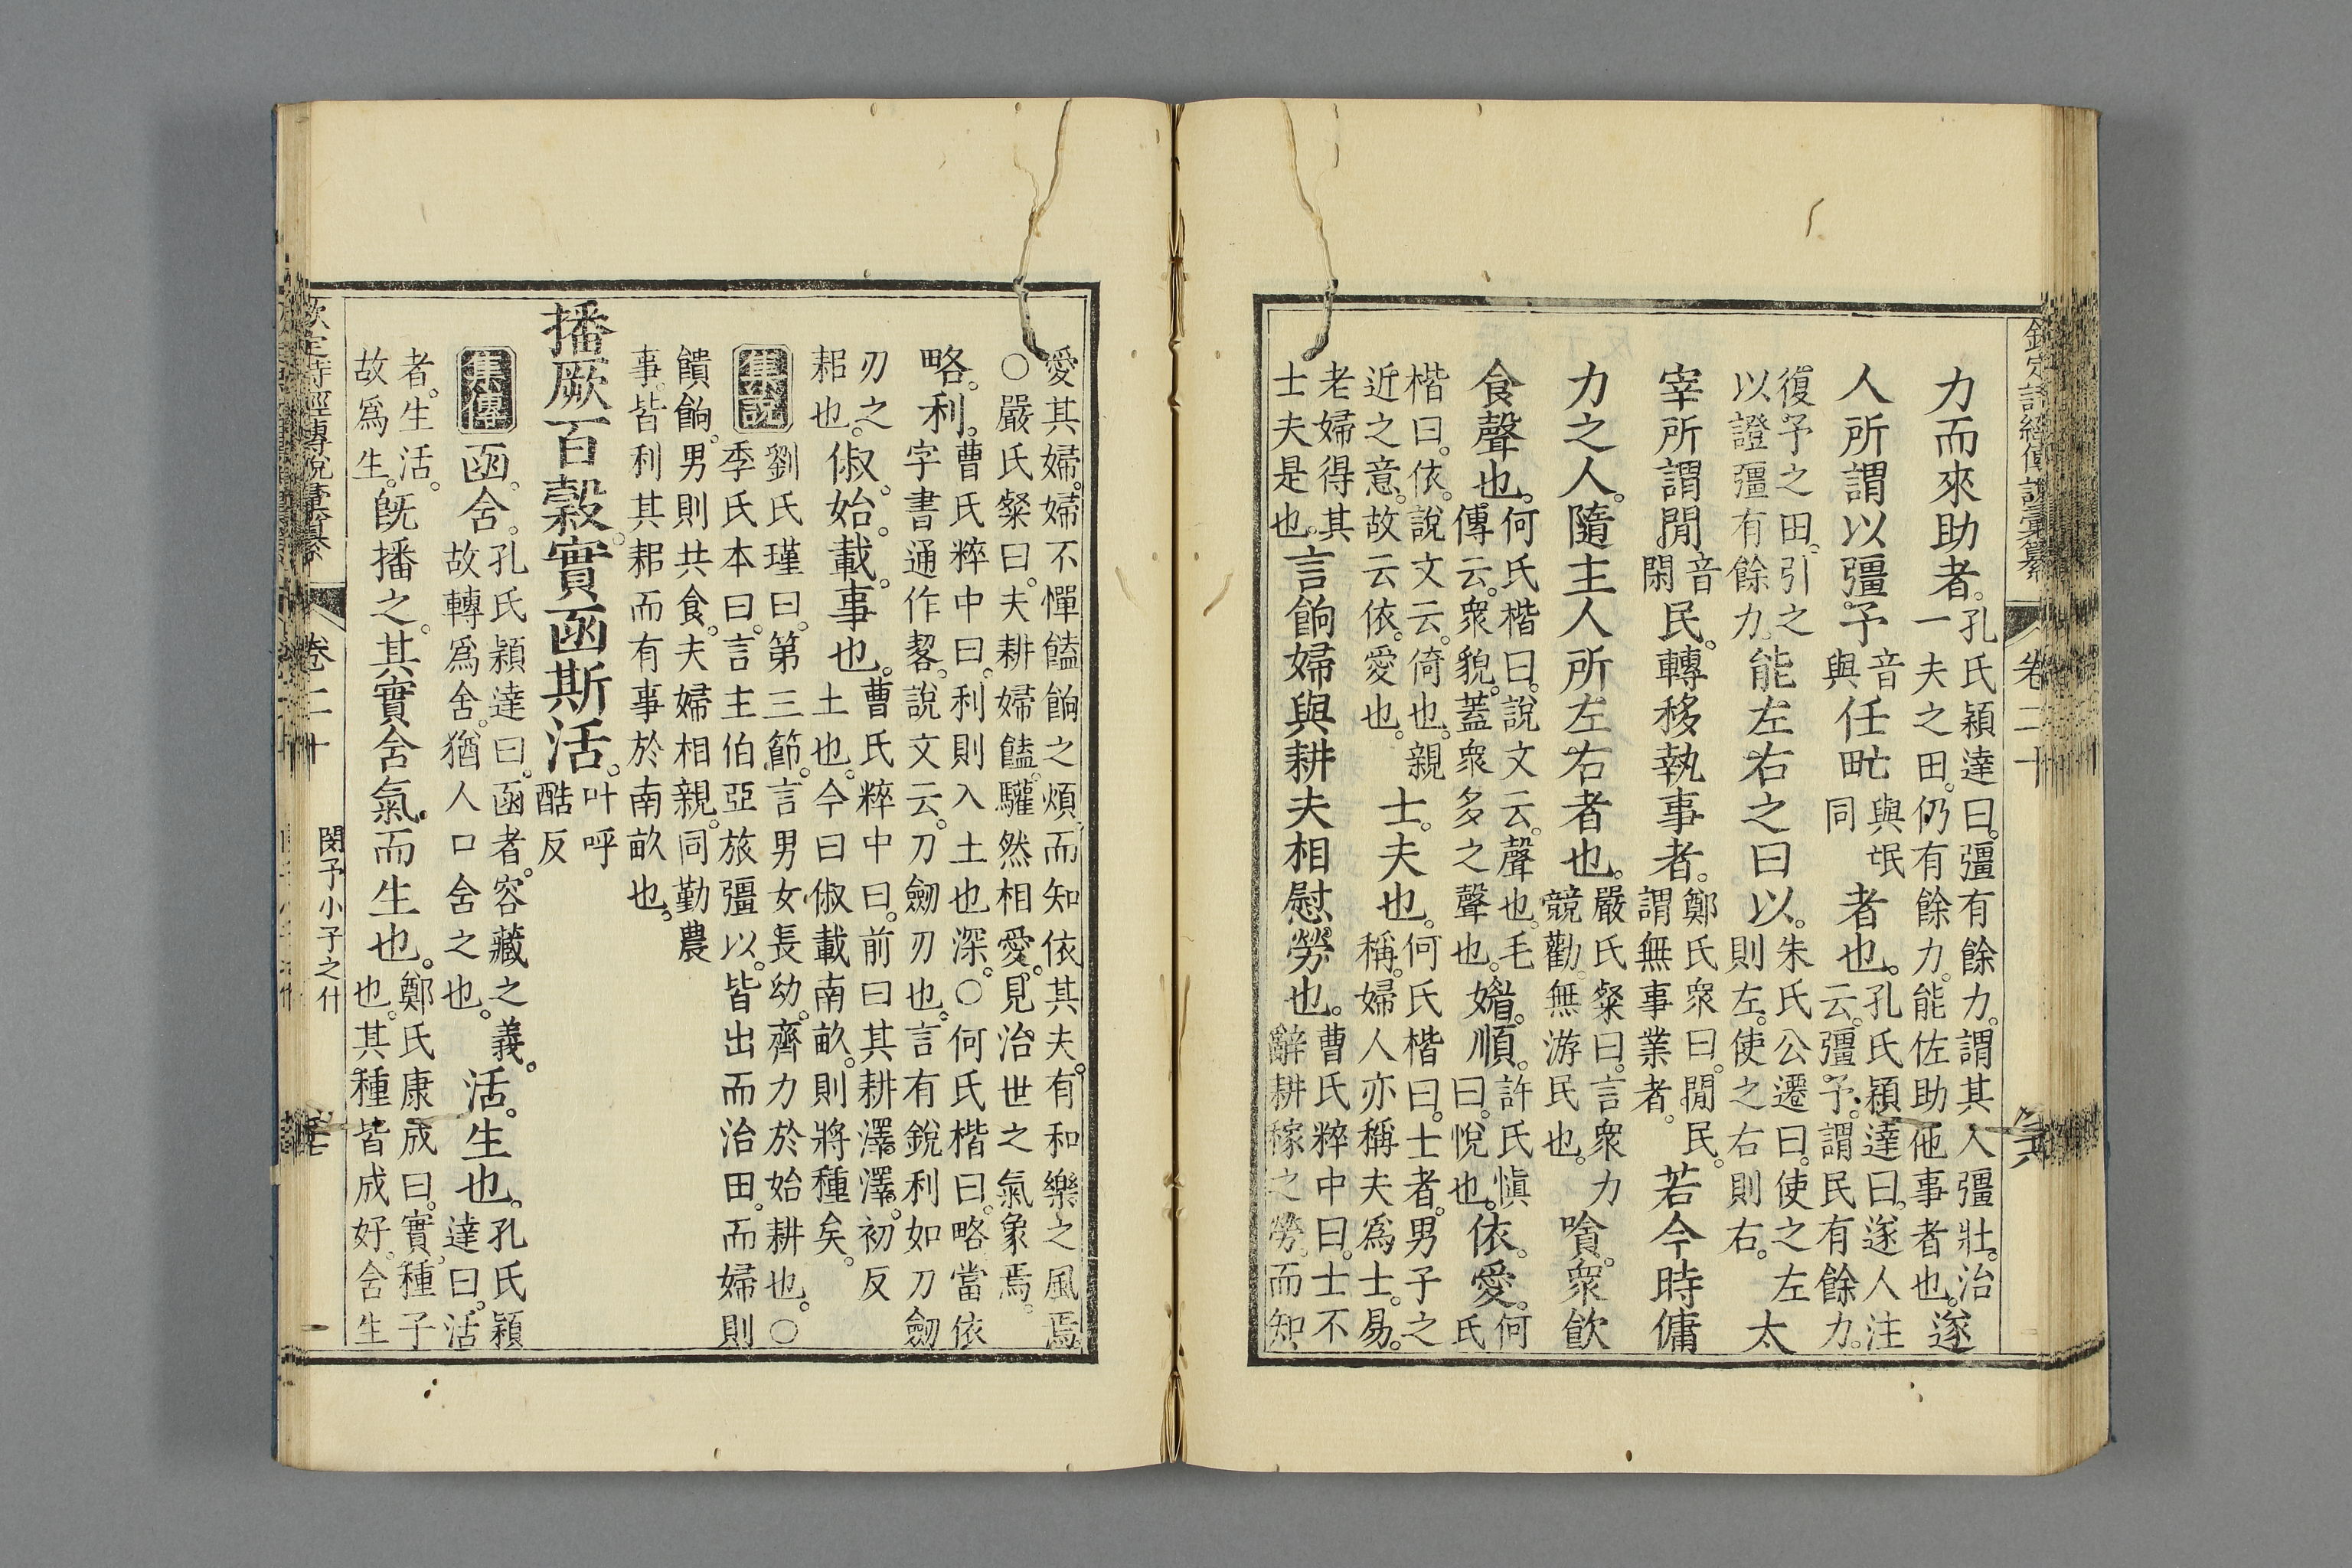 欽定詩經傳說彙纂 卷二十
力而來助者。孔氏穎達曰。彊有餘力。謂其人彊壯。治一夫之田。仍有餘力。能佐助他事者也。遂
人所謂以彊予音與任甿與氓同者也。孔氏穎達曰。遂人注云。彊予。謂民有餘力。
復予之田。引之以證彊有餘力。能左右之曰以。朱氏公遷曰。使之左則左。使之右則右。太
宰所謂閒音閑民。轉移執事者。鄭氏衆曰。閒民。謂無事業者。若今時傭
力之人。隨主人所左右者也。嚴氏粲曰。言衆力競勸。無游民也。嗿。衆飲
食聲也。何氏楷曰。說文云。聲也。毛傳云。衆貌。蓋衆多之聲也。媚。順。許氏愼曰。悅也。依。愛。何氏
楷曰。依。說文云。倚也。親近之意。故云依。愛也。士。夫也。何氏楷曰。士者。男子之稱。婦人亦稱夫爲士。易。
老婦得其士夫是也。言餉婦與耕夫相慰勞也。曹氏粹中曰。士不辭耕稼之勞。而知
愛其婦。婦不憚饁餉之煩。而知依其夫。有和樂之風焉。○嚴氏粲曰。夫耕婦饁。驩然相愛。見治世之氣象焉。
略。利。曹氏粹中曰。利則入土也深。○何氏楷曰。略當依字書通作䂮。說文云。刀劒刃也。言有銳利如刀劒
刃之耜也。俶。始。載。事也。曹氏粹中曰。前曰其耕澤澤。初反土也。今曰俶載南畝。則將種矣。
集說 劉氏瑾曰。第三節。言男女長幼。齊力於始耕也。○季氏本曰。言主伯亞旅彊以。皆出而治田。而婦則
饋餉。男則共食。夫婦相親。同勤農事。皆利其耜而有事於南畝也。
播厥百穀。實函斯活。叶呼酷反
集傳 函。舍。孔氏穎達曰。函者。容藏之義。故轉爲舍。猶人口舍之也。活。生也。孔氏穎達曰。活
者。生活。故爲生。旣播之。其實舍氣而生也。鄭氏康成曰。實。種子也。其種皆成好。舍生
欽定詩經傳說彙纂 卷二十 閔予小子之什